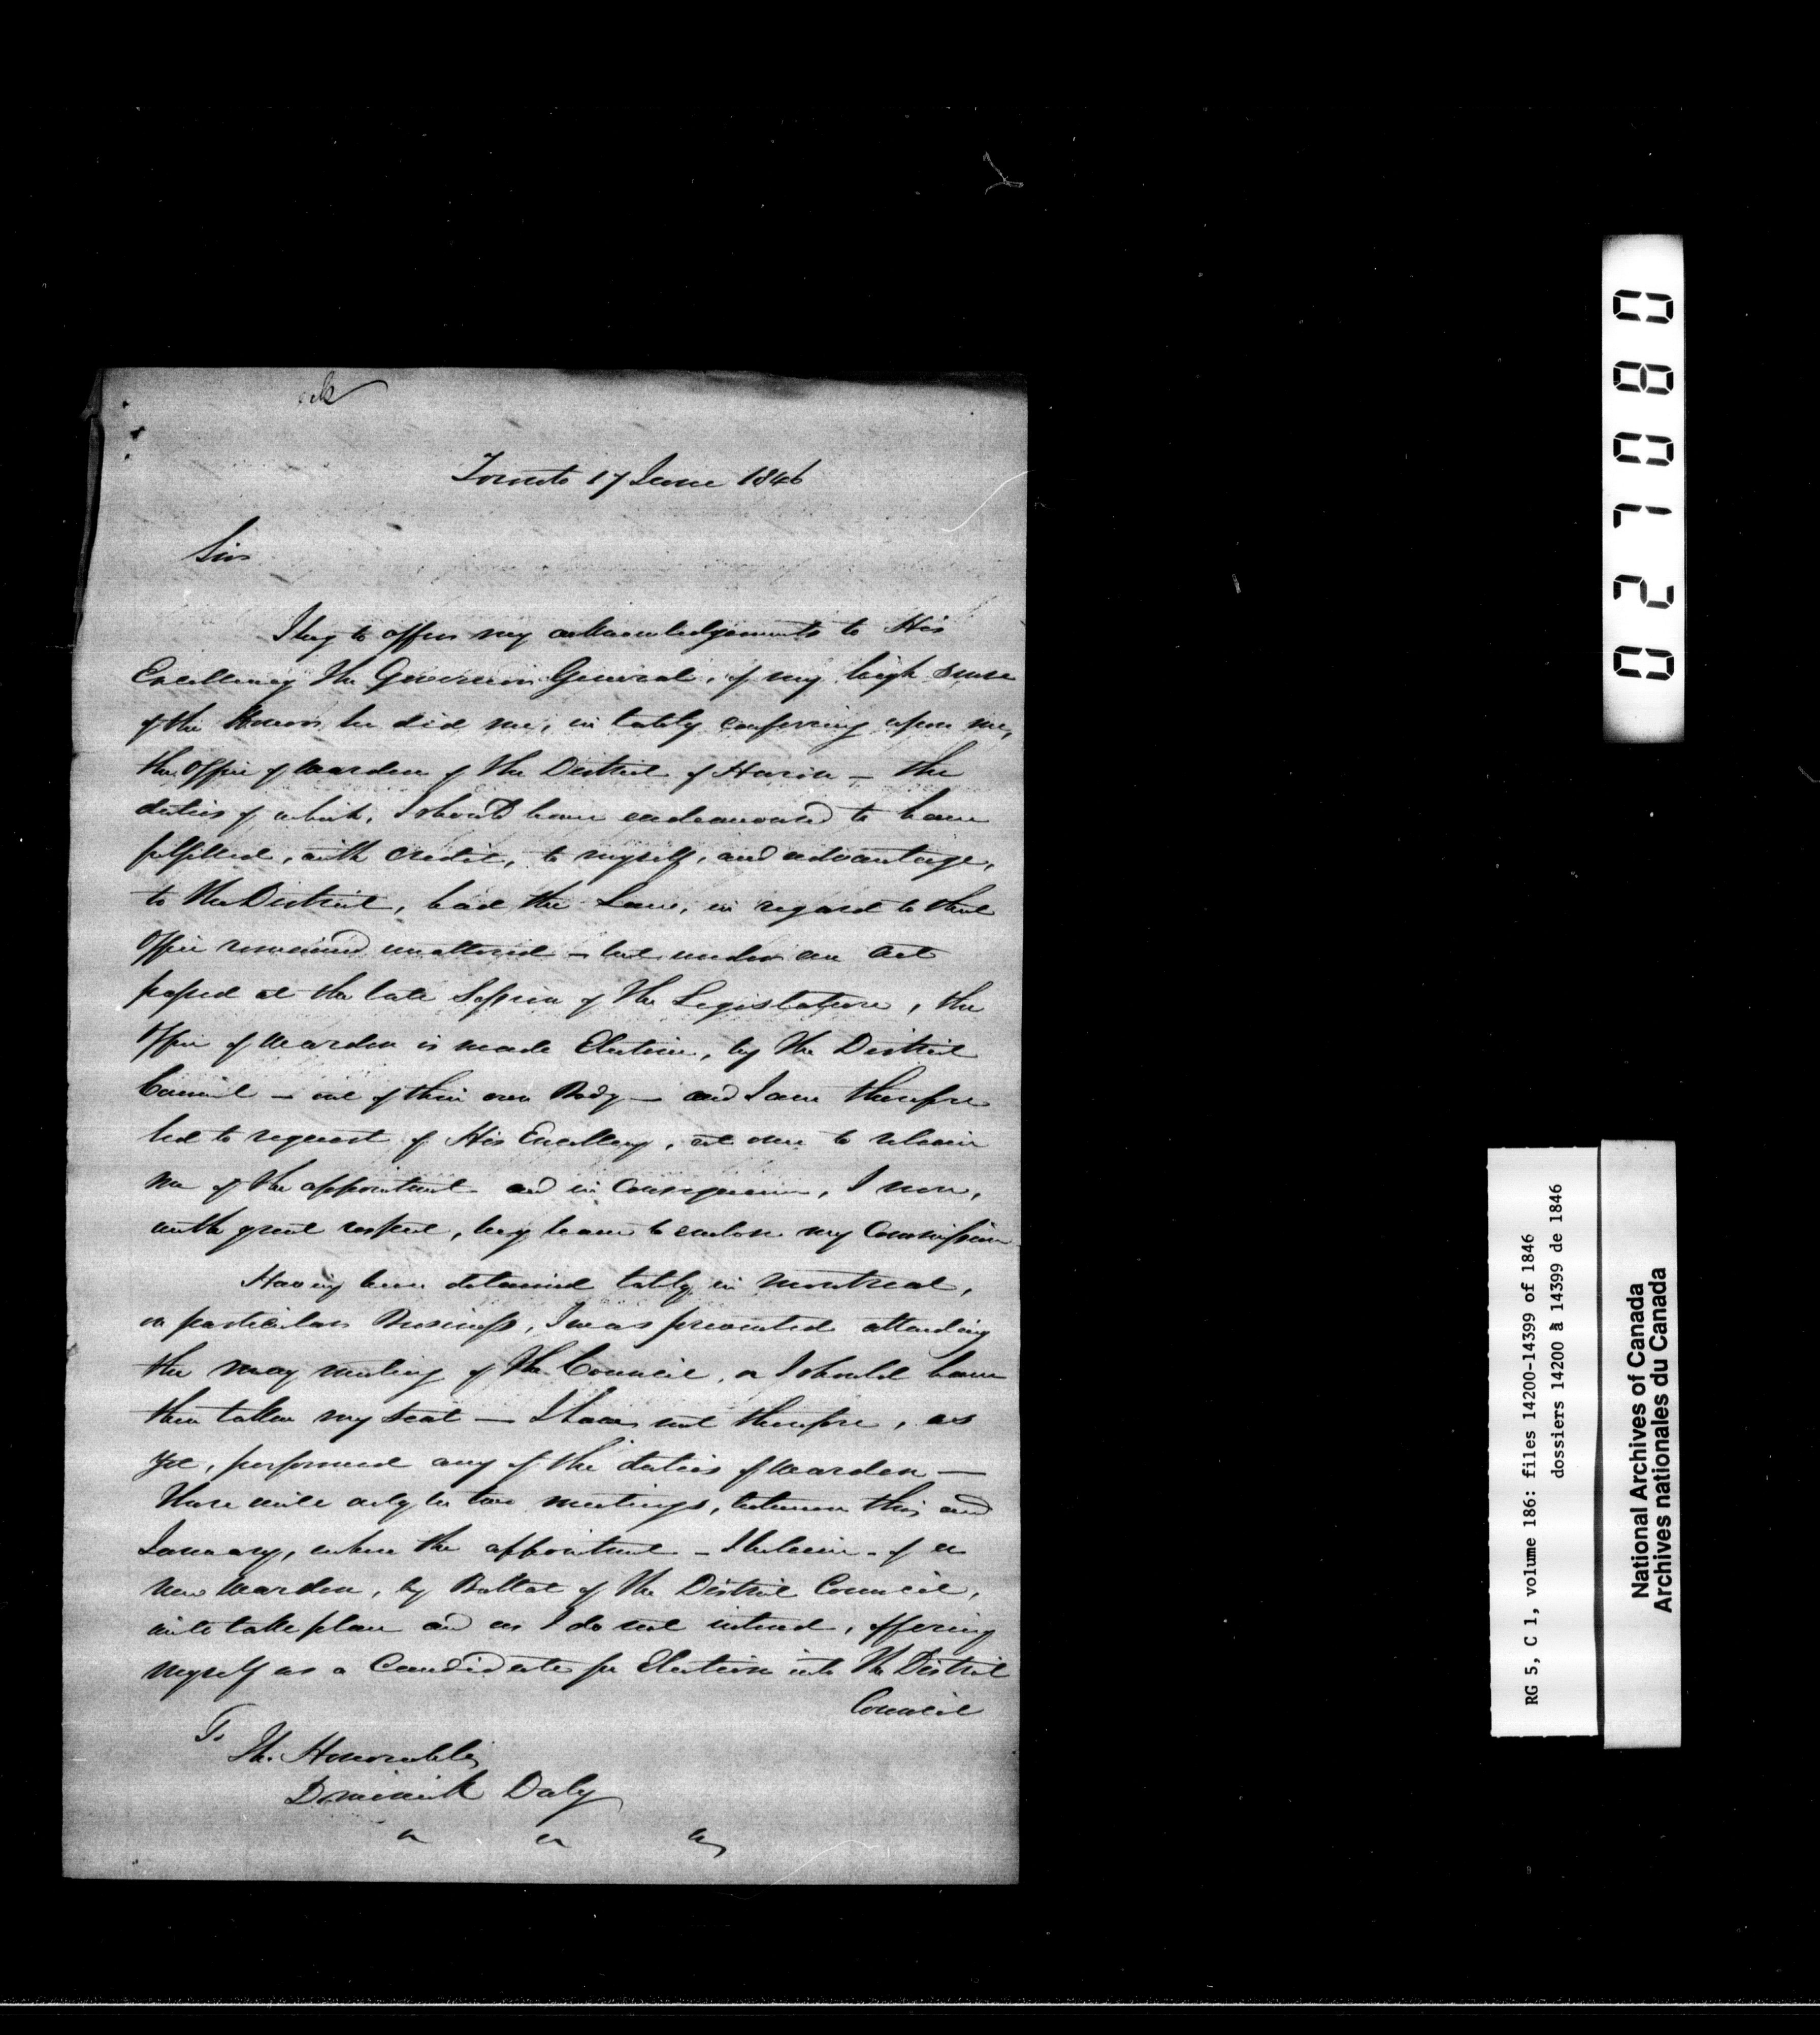 Toronto 17 June 1846
Sir
I beg to offer my acknowledgements to His
Excellency The Governor General, of my high sense
of the Honor he did me, in lately conferring upon me,
the Office of Warden of The District of Huron — the
duties of which, I should have endeavoured to have
fulfilled, with credit, to myself, and advantage,
to The District, had the Law, in regard to that
Office remained unaltered — but under an Act
passed at the late Session of The Legislature, the
Office of Warden is made Elective, by The District
Council — out of their own Body — and I am therefore
led to request of His Excellency, at once to relieve
me of the appointment and in Consequence, I now,
with great respect, beg leave to enclose my Commission
Having been detained lately in Montreal,
on particular Business, I was prevented attending
the May meeting of The Council, or I should have
then taken my seat — I have not therefore, as
yet, performed any of the duties of Warden —
There will only be two meetings, between this and
January, when the appointment - Election - of a
new Warden, by Ballot of The District Council,
will take place and as I do not intend, offering
myself as a Candidate for Election into The District
Council
To
The Honorable
Dominick Daly
027080
RG 5, C 1, volume 186: files 14200-14399 of 1846
dossiers 14200 à 14399 de 1846
National Archives of Canada
Archives nationales du Canada